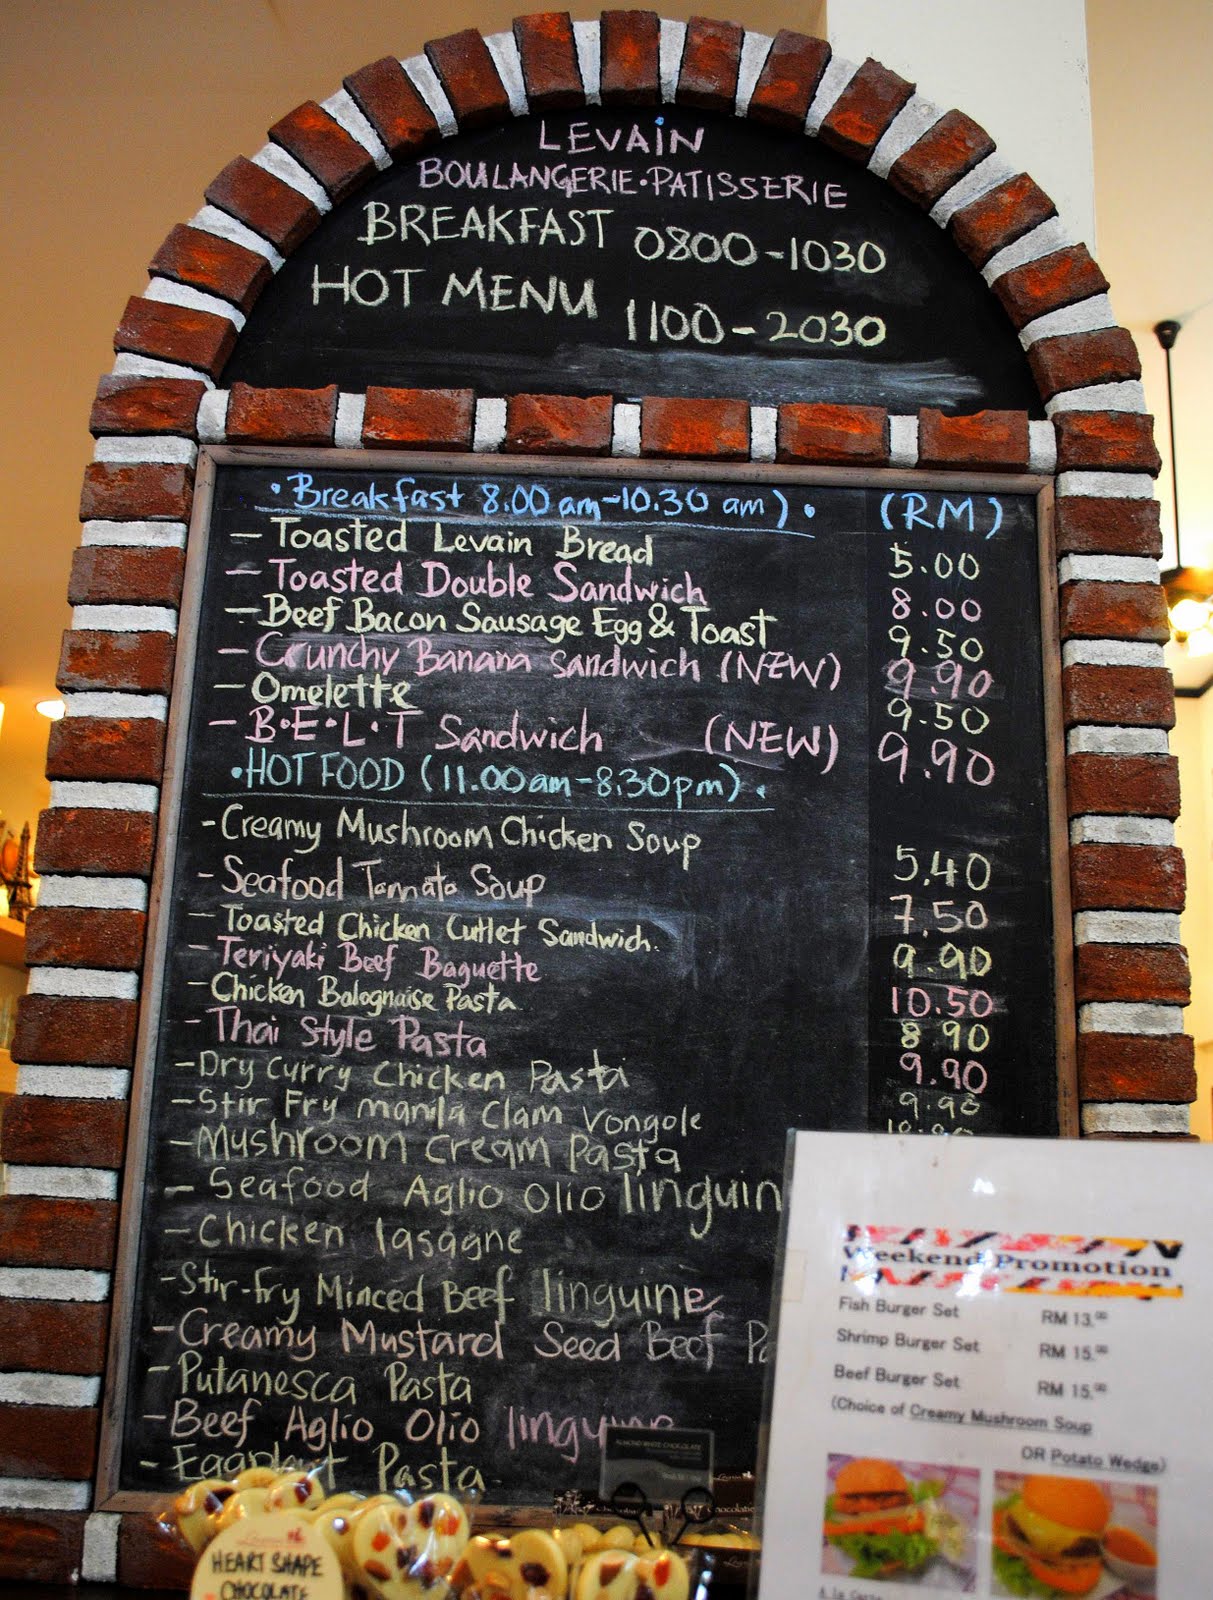 LEVAIN
BOULANGERIE·PATISSERIE
BREAKFAST 0800-1030
HOT MENU 1100-2030
·Breakfast 8.00 am-10.30 am). (RM)
- Toasted Levain Bread 5.00
- Toasted Double Sandwich 8.00
- Beef Bacon Sausage Egg & Toast 9.50
- Crunchy Banana Sandwich (NEW) 9.90
- Omelette 9.50
- B·E·L·T Sandwich (NEW) 9.90
·HOT FOOD (11.00am-8.30pm).
- Creamy Mushroom Chicken Soup 5.40
- Seafood Tamato Soup 7.50
- Toasted Chicken Cutlet Sandwich. 9.90
- Teriyaki Beef Baguette 10.50
- Chicken Balognaise Pasta 8.90
- Thai Style Pasta 9.90
- Dry Curry Chicken Pasta 9.90
- Stir Fry manila Clam Vongole
- Mushroom Cream Pasta
- Seafood Aglio Olio linguin
- Chicken lasagne
- Stir-fry Minced Beef linguine
- Creamy Mustard Seed Beef Pa
- Putanesca Pasta
- Beef Aglio Olio linguine
- Eggplant Pasta
Weekend Promotion
Fish Burger Set RM 13.00
Shrimp Burger Set RM 15.00
Beef Burger Set RM 15.00
(Choice of Creamy Mushroom Soup
OR Potato Wedge)
A la Carte
ALMOND WHITE CHOCOLATE
HEART SHAPE
CHOCOLATE